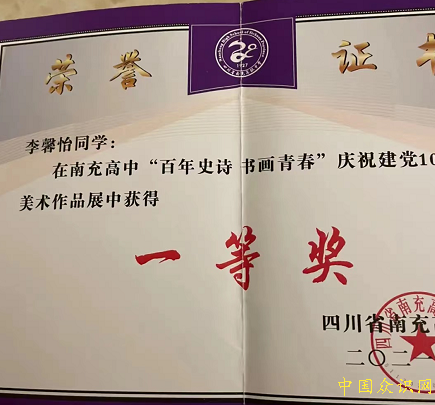 荣誉证书
1927
李馨怡同学：
在南充高中“百年史诗 书画青春”庆祝建党10
美术作品展中获得
一等奖
四川省南充
四川省南充高
二〇二一
中国众识网